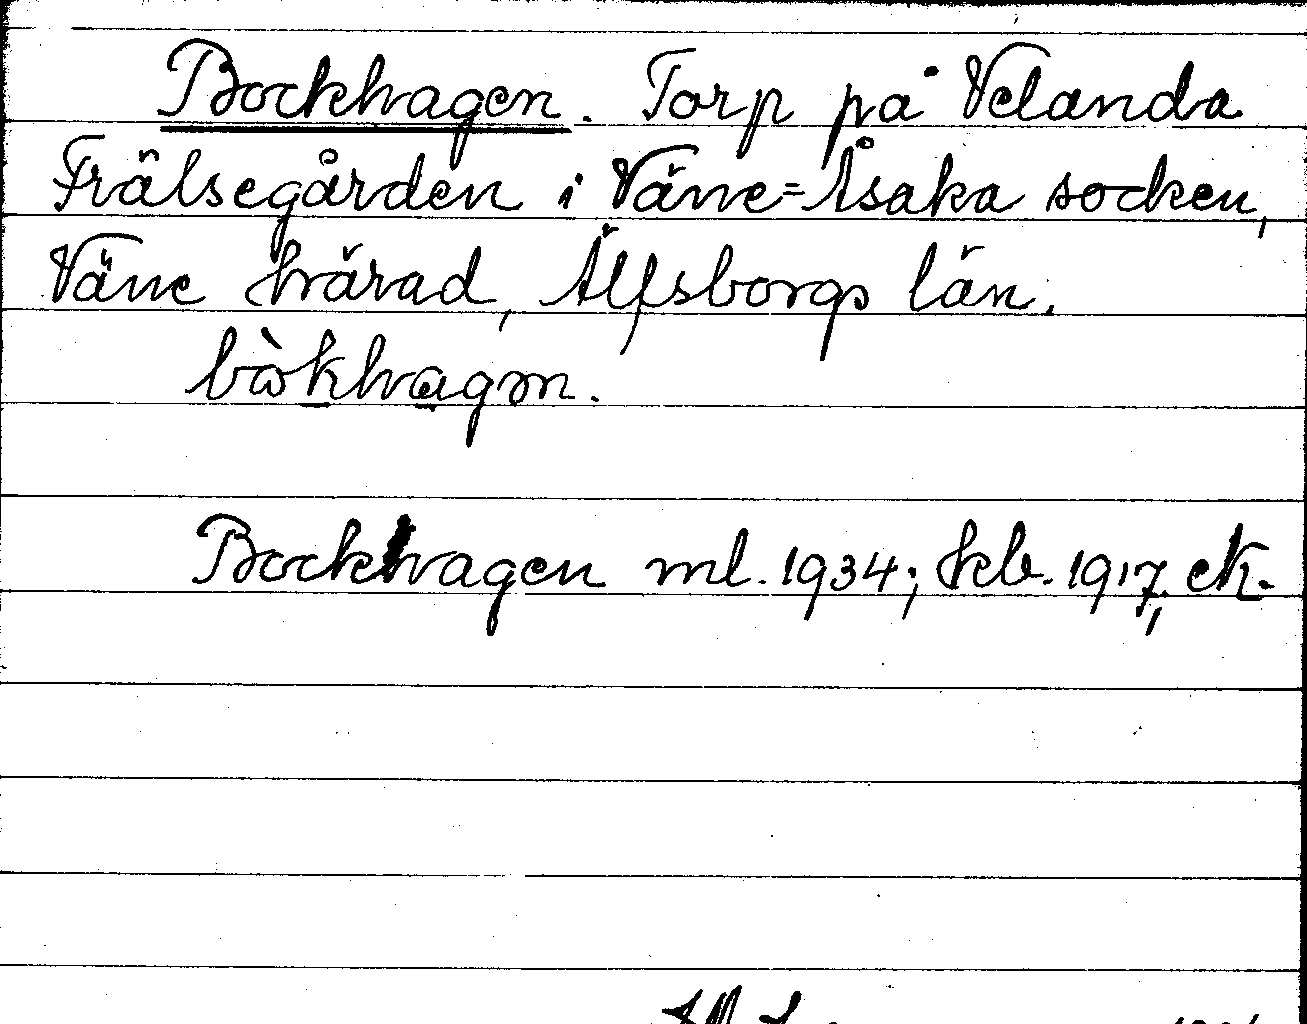 Bockhagen. Torp på Velanda
Frälsegården i Väne-Åsaka socken,
Väne härad, Älfsborgs län.
bòkhagən.
Bockhagen ml. 1934; kb. 1917; eK.